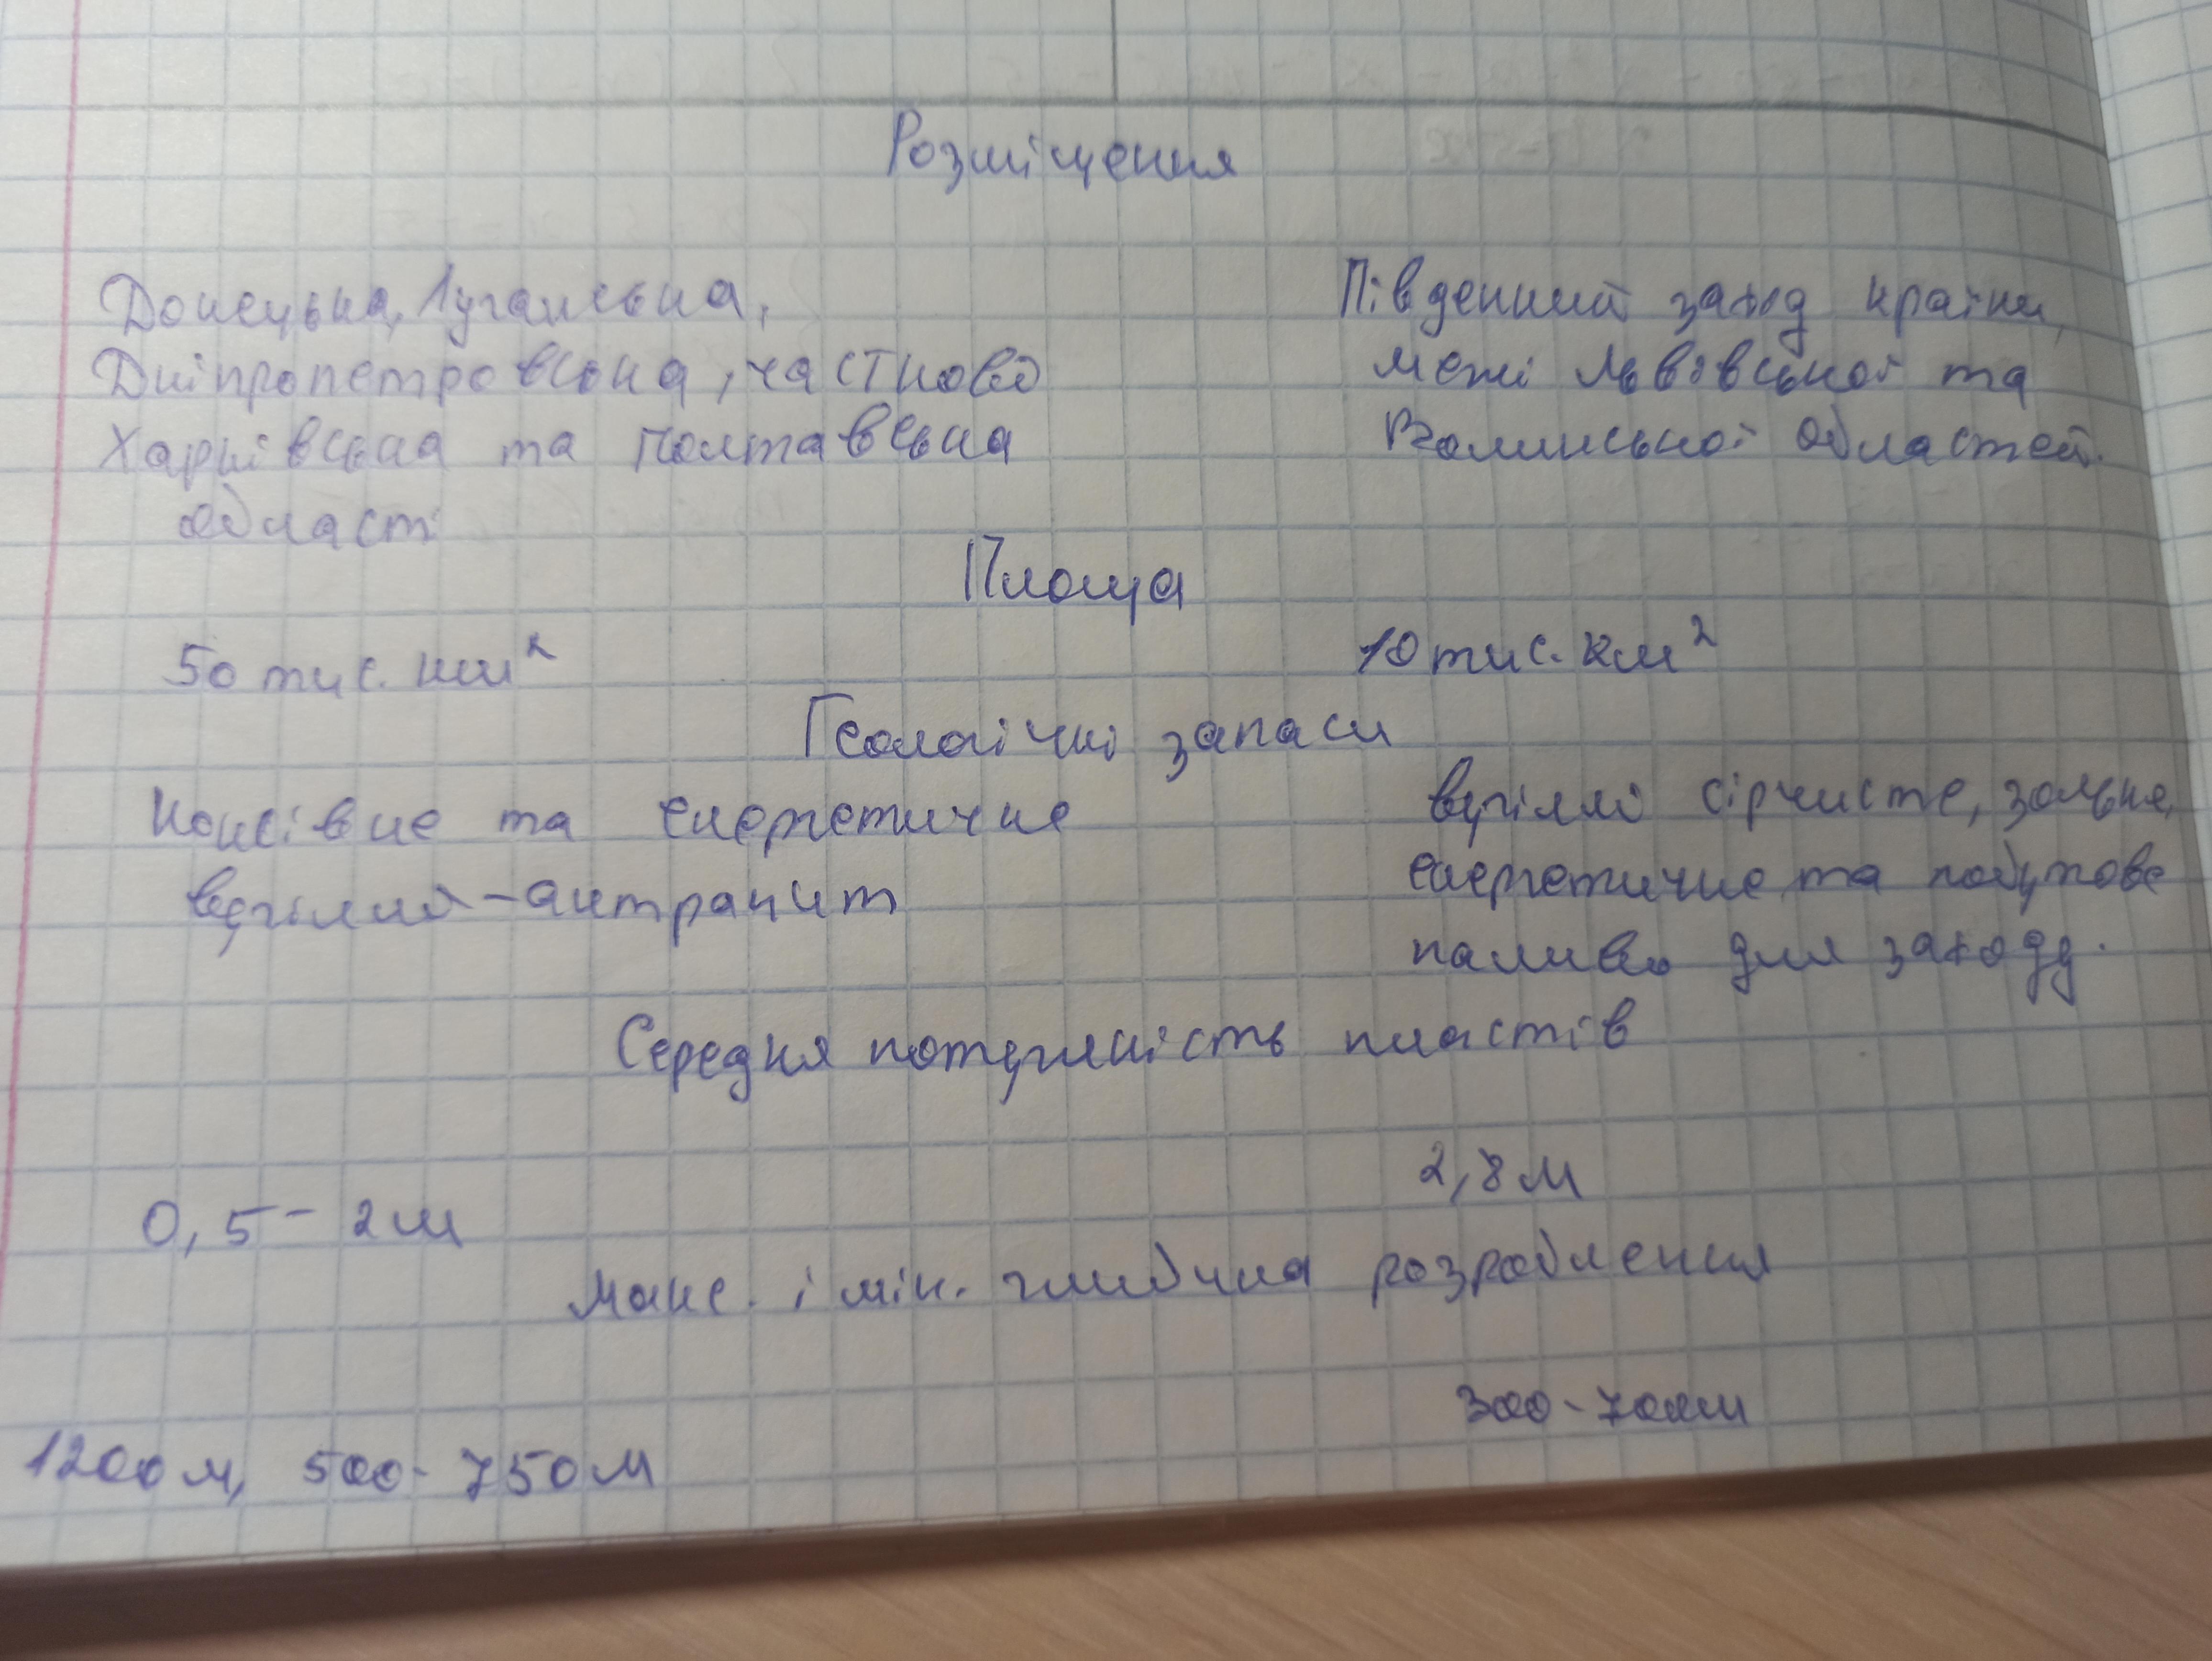 Розміщення
Донецька, Луганська,
Дніпропетровська, частково
Харківська та Полтавська
області
Південний захід країни,
межі Львівської та
Волинської областей.
Площа
50 тис. км²
10 тис. км²
Геологічні запаси
Коксівне та енергетичне
вугілля - антрацит
вугілля сірчисте, зольне,
енергетичне та побутове
паливо для заходу.
Середня потужність пластів
0,5 - 2м
2,8м
Макс. і мін. глибина розроблення
1200м, 500-750м
300-700м